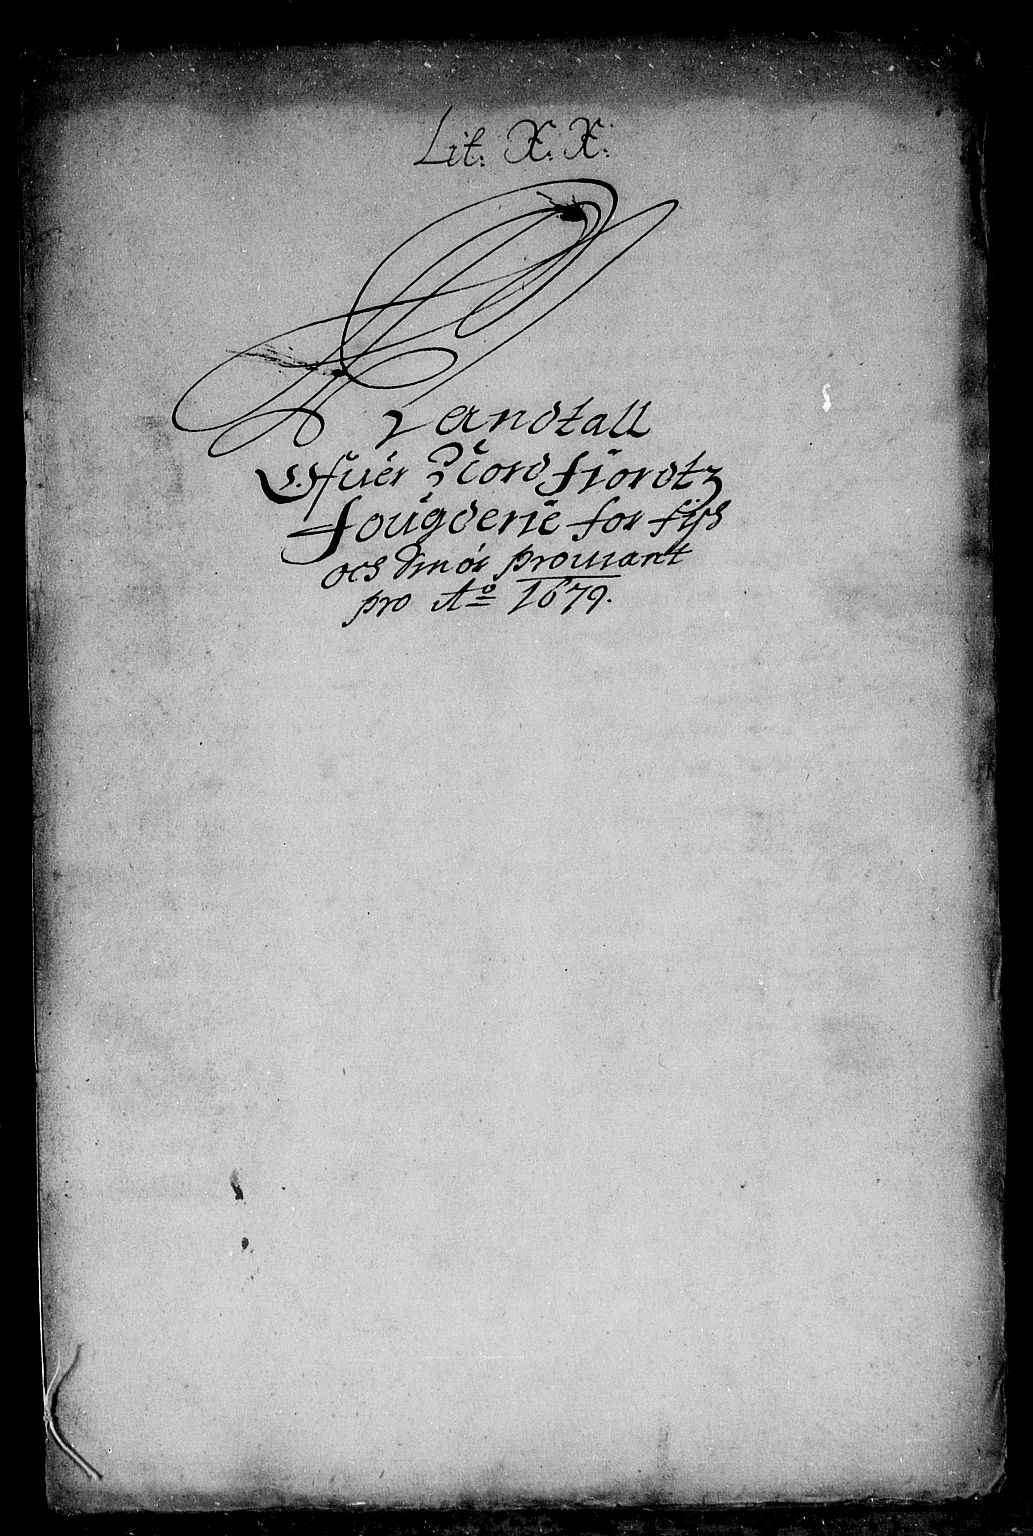 Lit: X: X:
Mandtall
Offuer Nordfiordtz
Fougderie for fisk
och Smør prouiant
pro Ao 1679.